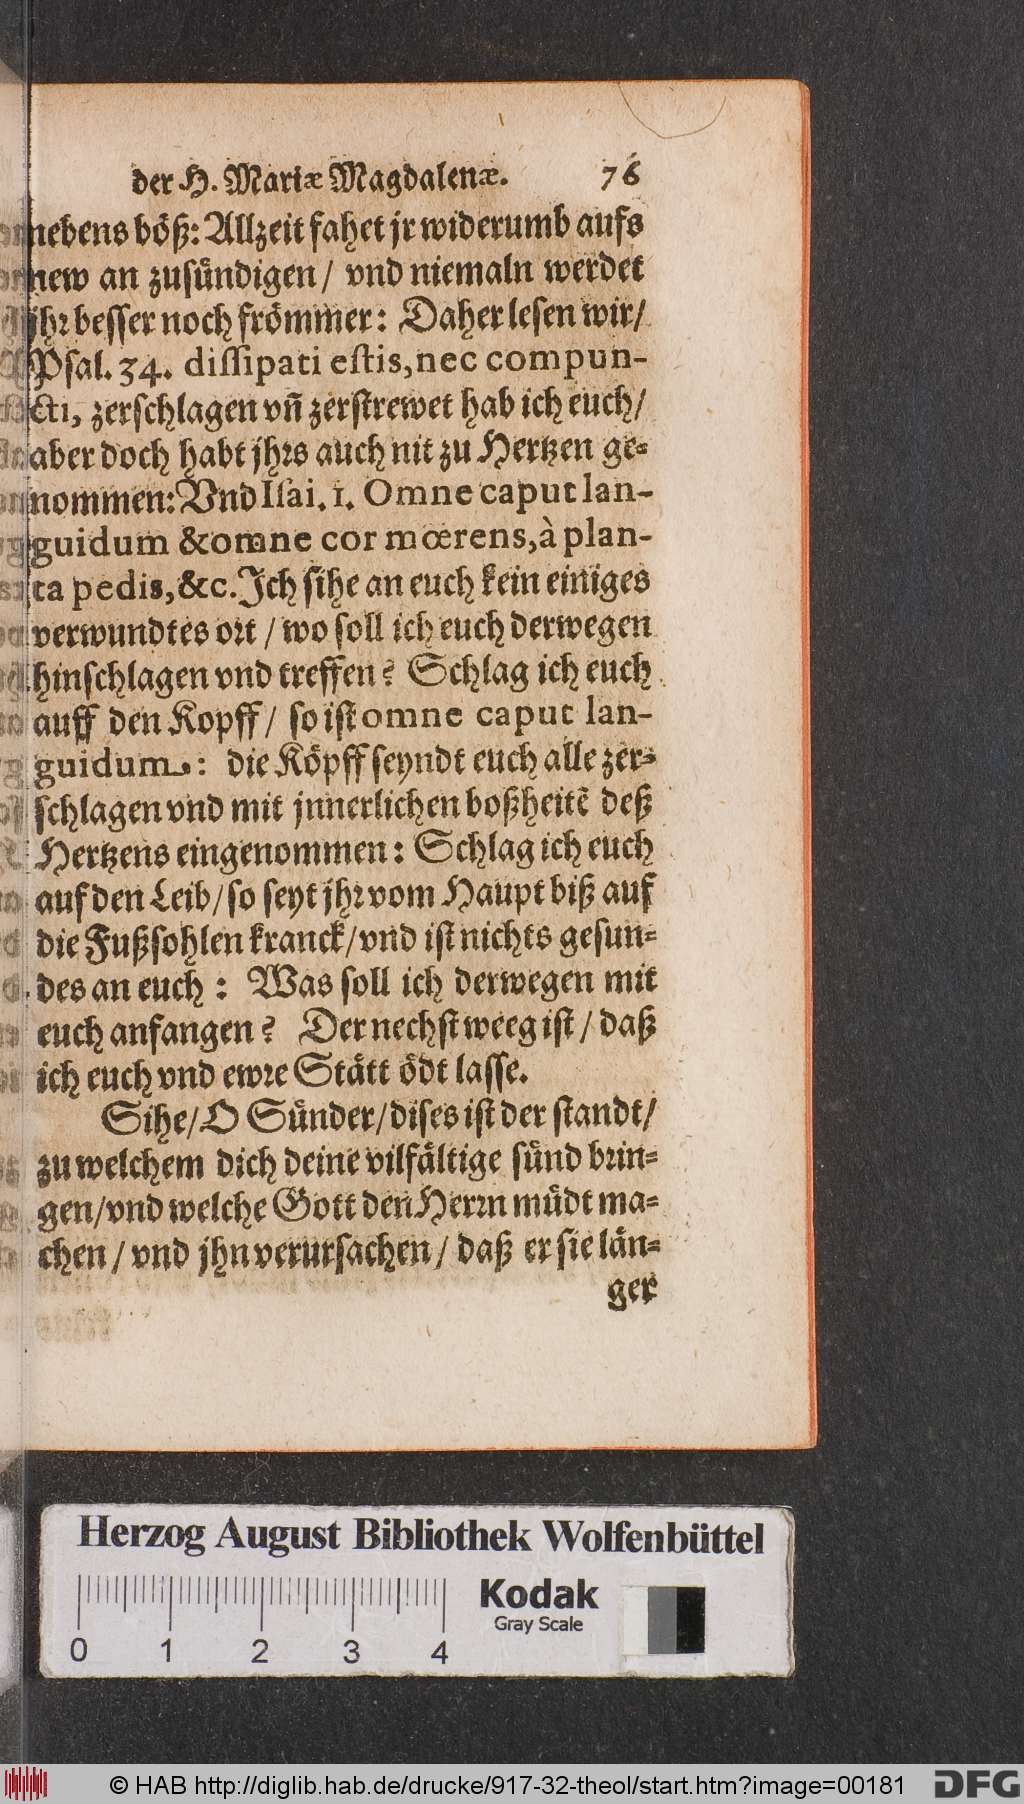 der H. Mariæ Magdalenæ. 76
nebens böß: Allzeit fahet jr widerumb aufs
new an zusündigen / vnd niemaln werdet
jhr besser noch frömmer: Daher lesen wir/
Psal. 34. dissipati estis, nec compun-
cti, zerschlagen vñ zerstrewet hab ich euch/
aber doch habt jhrs auch nit zu Hertzen ge-
nommen: Vnd Isai. 1. Omne caput lan-
guidum & omne cor mœrens, à plan-
ta pedis, &c. Jch sihe an euch kein einiges
verwundtes ort / wo soll ich euch derwegen
hinschlagen vnd treffen? Schlag ich euch
auff den Kopff / so ist omne caput lan-
guidum: die Köpff seyndt euch alle zer-
schlagen vnd mit jnnerlichen boßheitē deß
Hertzens eingenommen: Schlag ich euch
auf den Leib / so seyt jhr vom Haupt biß auf
die Fußsohlen kranck / vnd ist nichts gesun-
des an euch: Was soll ich derwegen mit
euch anfangen? Der nechst weeg ist / daß
ich euch vnd ewre Stätt ödt lasse.
Sihe / O Sünder / dises ist der standt /
zu welchem dich deine vilfältige sünd brin-
gen / vnd welche Gott den Herrn müdt ma-
chen / vnd jhn verursachen / daß er sie län-
ger
Herzog August Bibliothek Wolfenbüttel
Kodak
Gray Scale
0 1 2 3 4
© HAB http://diglib.hab.de/drucke/917-32-theol/start.htm?image=00181
DFG